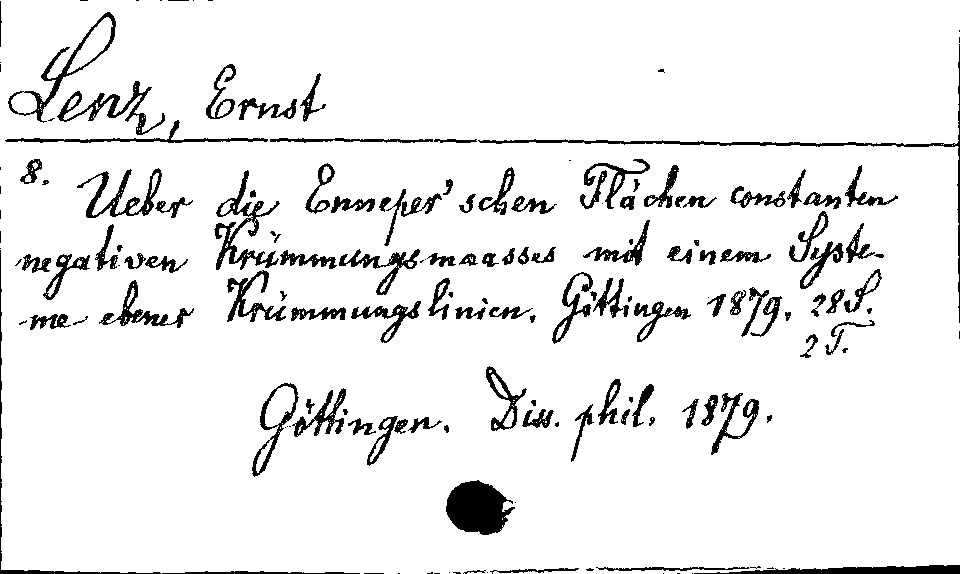 Lenz, Ernst
8.
Ueber die Enneper'schen Flächen constanten
negativen Krümmungsmaasses mit einem Syste-
me ebener Krümmungslinien. Göttingen 1879. 28 S.
2 T.
Göttingen. Diss. phil. 1879.